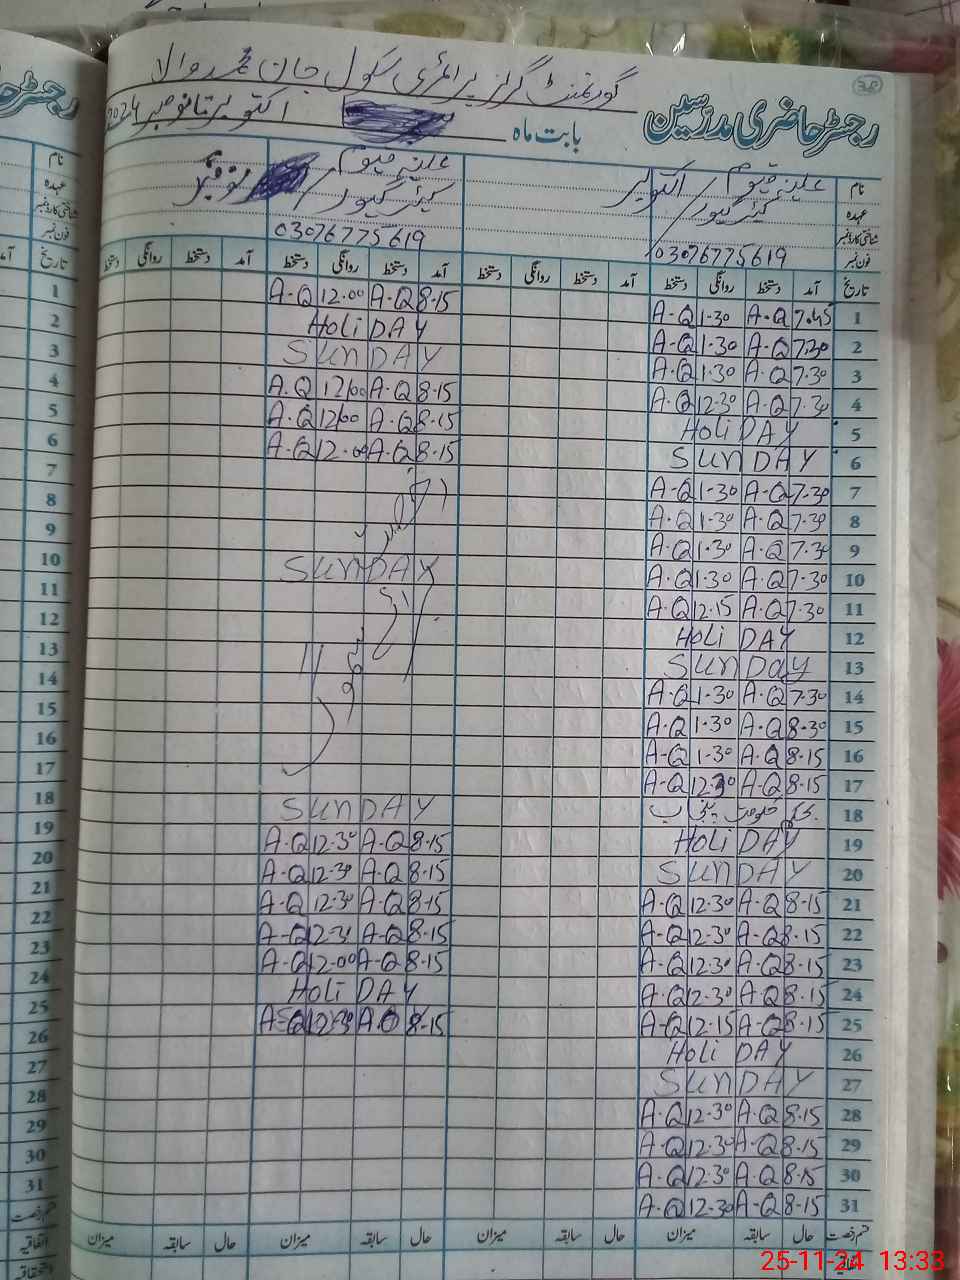 گورنمنٹ گرلز پرائمری سکول جان محمد والا
38
رجسٹر حاضری مدرسین
بابت ماہ
اکتوبر تا نومبر 2024
نام
علینہ قیوم
اکتوبر
علینہ قیوم
نومبر
عہدہ
کیئر گیور
کیئر گیور
شناختی کارڈ نمبر
فون نمبر
03076775619
03076775619
تاریخ آمد دستخط روانگی دستخط آمد دستخط روانگی دستخط آمد دستخط روانگی دستخط آمد دستخط روانگی دستخط
1 7.45 A-Q 1-30 A-Q 8-15 A-Q 12.00 A-Q
2 7.30 A-Q 1.30 A-Q HOLIDAY
3 7.30 A-Q 1.30 A-Q SUNDAY
4 7.30 A-Q 12.30 A-Q 8-15 A-Q 12.00 A.Q
5 HOLIDAY 8-15 A-Q 12.00 A.Q
6 SUNDAY 8-15 A-Q 12.00 A-Q
7 7.30 A-Q 1-30 A-Q
8 7.30 A-Q 1-30 A-Q
9 7.30 A-Q 1.30 A-Q
10 7.30 A-Q 1.30 A-Q SUNDAY
11 7.30 A-Q 12.15 A-Q
12 HOLIDAY
13 SUNDAY
14 7.30 A-Q 1-30 A-Q
15 8-30 A-Q 1-30 A-Q
16 8-15 A-Q 1-30 A-Q
17 8-15 A-Q 12.30 A-Q SUNDAY
18 8-15 A-Q 12-30 A-Q
19 HOLIDAY 8-15 A-Q 12-30 A-Q
20 SUNDAY 8-15 A-Q 12-30 A-Q
21 8-15 A-Q 12.30 A-Q 8-15 A-Q 12-30 A-Q
22 8-15 A-Q 12.30 A-Q 8-15 A-Q 12.00 A-Q
23 8-15 A-Q 12.30 A-Q HOLIDAY
24 8-15 A-Q 12.30 A-Q
25 8-15 A-Q 12.15 A-Q 8-15 A.Q 12-30 A-Q
26 HOLIDAY
27 SUNDAY
28 8-15 A-Q 12.30 A-Q
29 8-15 A-Q 12.30 A-Q
30 8-15 A-Q 12.30 A-Q
31 8-15 A-Q 12.30 A-Q
قسم رخصت حال سابقہ میزان حال سابقہ میزان حال سابقہ میزان حال سابقہ میزان
اتفاقیہ
25-11-24 13:33